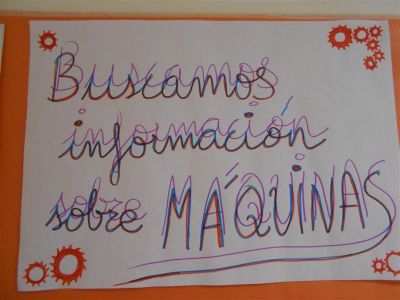 Buscamos
información
sobre MÁQUINAS